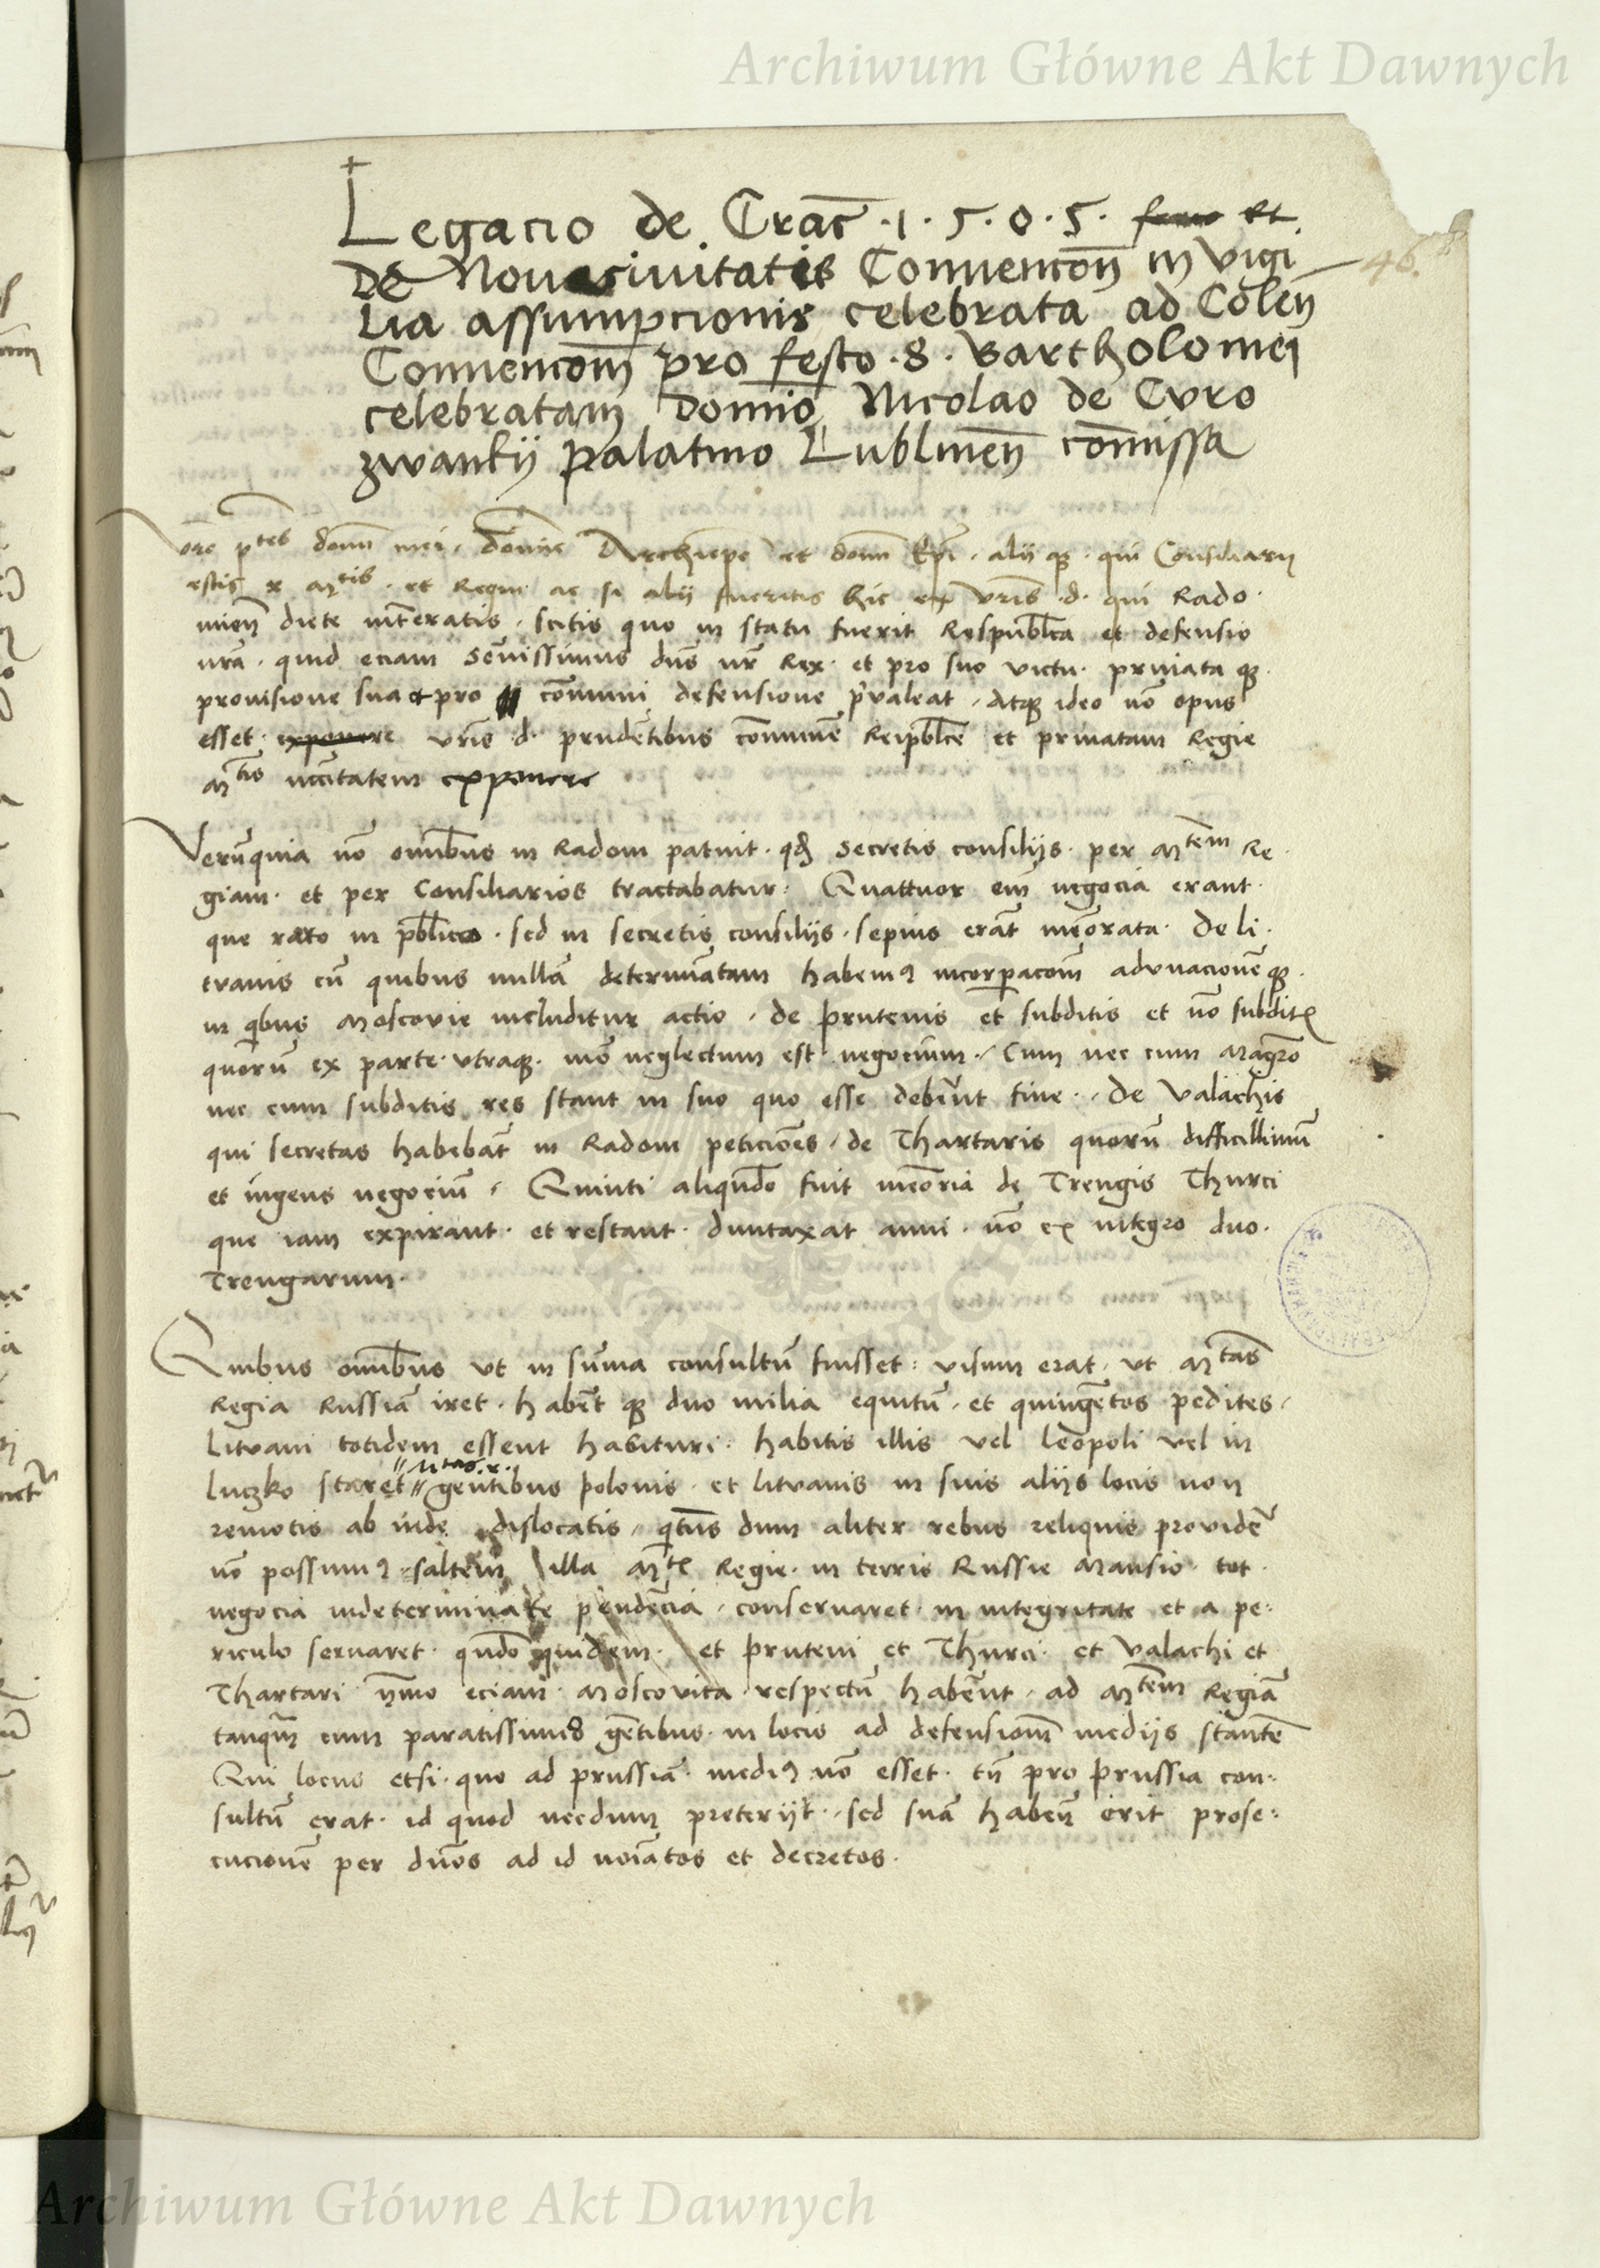 Archiwum Główne Akt Dawnych
Legacio de Crac̄ · 1 · 5 · 0 · 5 · et
de Nouecivitatis Convencōn in vigi
lia assumpcionis celebrata ad Colen̄
Convencōm pro festo · S · Bartholomei
celebratam domīo Nicolao de Curo
zwanky palatino Lublinen̄ com̄issa
46.
Vr̄e p̄tes domī mei · domīe Archiepē et domī Ep̄i · alij qȝ · qui Consiliarij
estis R M^tis · et Regni ac si alij fueritis hic ex vr̄is · d · qui Rado
mien̄ diete int̄eratis · scitis quo in statu fuerit Respub̄lca et defensio
nr̄a · quid eciam Ser̄nissimus dn̄s nr̄ Rex · et pro suo victu · privata qȝ
provisione sua et pro com̄uni defensione p̄valeat · Atqȝ ideo nō opus
esset exponere vr̄is · d · prudēntibus com̄unē Reipb̄lce et privatam Regie
M^tis nc̄citatem exponere
Verūquia nō omīb̄us in Radom patuit · qd̄ secretis consilijs · per M^tem Re
giam · et per Consiliarios tractabatur · Quattuor em̄ negocia erant ·
que raro in pb̄lico · sed in secretis consilijs · sepius erāt mēorata · De li
tvanis cū quibus nullā determīatam habemꝰ incorpacōm adunacionēqȝ
in q̄ibus Moscovie includitur actio · de prutenis et subditis et nō subdit̄
quorū ex parte utraqȝ · nō neglectum est negocium · Cum nec cum Magr̄o
nec cum subditis res stant in suo quo esse debēnt fine · De Valachis
qui secretas habebāt in Radom peticiōes · de Thartaris quorū difficillimū
et ingens negociū · Quinti aliqn̄do fuit memōria de Trengis Thurci
que iam expirant · et restant · duntaxat anni · nō ex integro duo ·
Trengarum ·
Quibus omīb̄us ut in sum̄a consultū fuisset · visum erat · ut M^tas
Regia Russiā iret · habēt qȝ duo milia equitū · et quingētos pedites ·
Litvani totidem essent habituri · habitis illis vel Leopoli vel in
M^tas · R ·
Luczko staret gentibus polonis · et litvanis in suis alijs locis non
remotis ab inde dislocatis · q̄tn̄us dum aliter rebus reliquis providē
nō possumꝰ · saltem illa M^t̄ Regie · in terris Russie Mansio tot
negocia indeterminate pendēcia · conservaret in integritate et a pe
riculo servaret · qn̄do quidem · et pruteni et Thurci · et Valachi et
Thartari ymo eciam Moscovita respectū habēnt · ad M^tem Regiā
tanqm̄ cum paratissimis gētibus in locis ad defensionē medijs stantē
Qui locus etsi · quo ad prussiā · mediꝰ nō esset · tn̄ pro prussia con
sultū erat · id quod necdum preterijt · sed suā haben̄ erit prose
cucionē per dn̄os ad id noīatos et decretos ·
Archiwum Główne Akt Dawnych